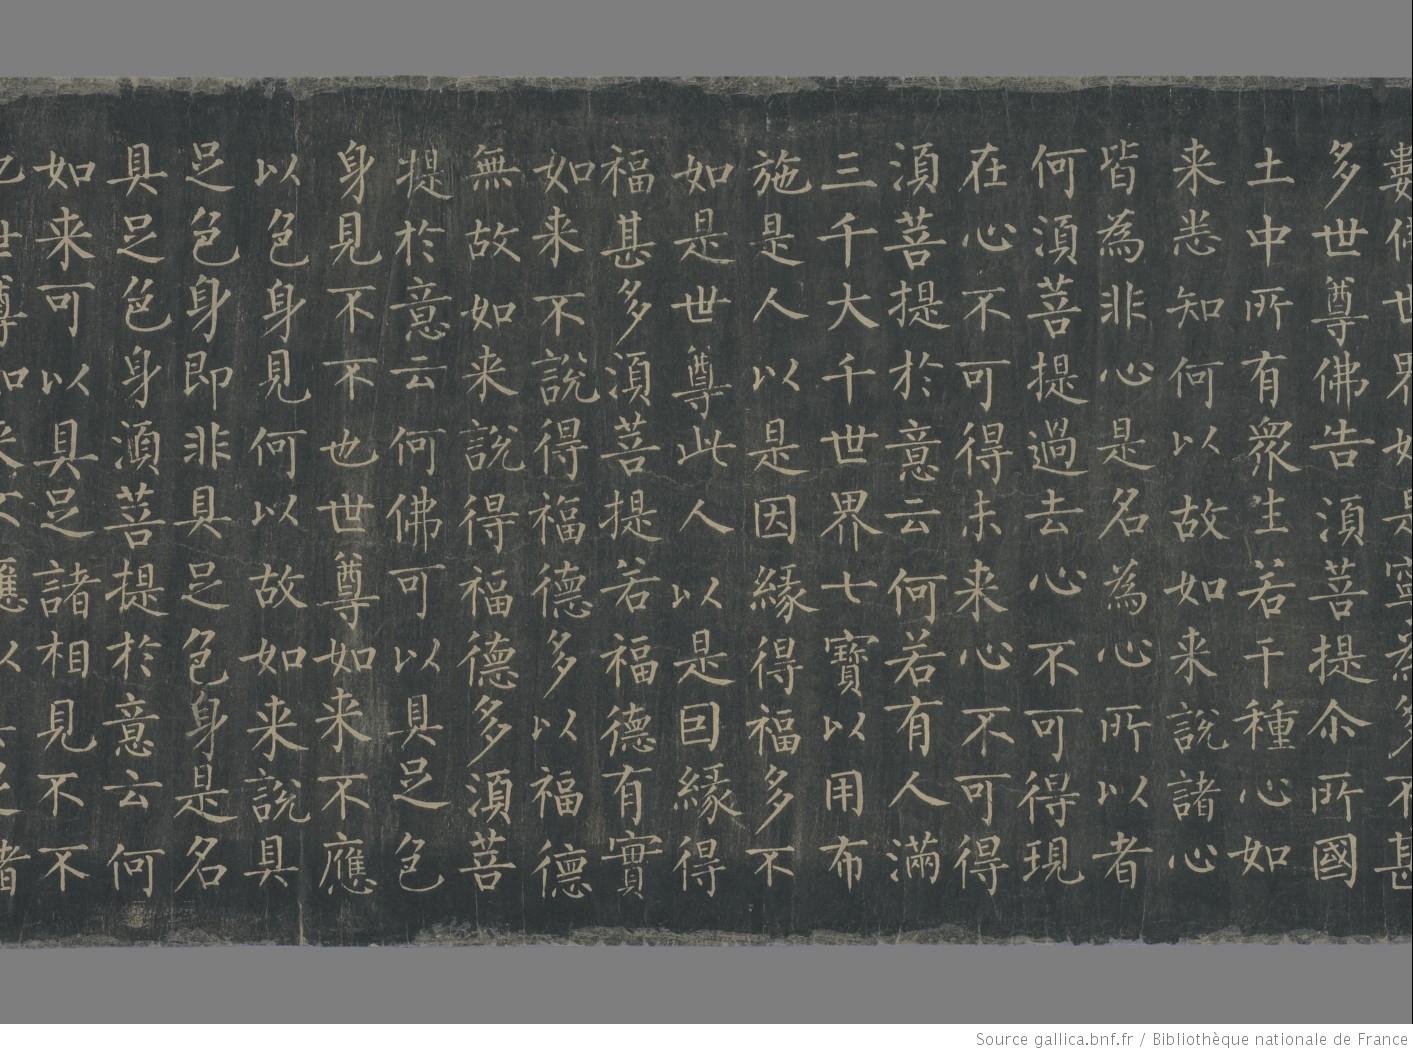 數佛世界如是寧為多不甚
多世尊佛告須菩提尒所國
土中所有衆生若干種心如
来悉知何以故如来說諸心
皆為非心是名為心所以者
何須菩提過去心不可得現
在心不可得未来心不可得
須菩提於意云何若有人滿
三千大千世界七寶以用布
施是人以是因緣得福多不
如是世尊此人以是囙緣得
福甚多須菩提若福德有實
如来不說得福德多以福德
無故如来說得福德多須菩
提於意云何佛可以具足色
身見不不也世尊如来不應
以色身見何以故如来說具
足色身即非具足色身是名
具足色身須菩提於意云何
如来可以具足諸相見不不
也世尊如来不應以具足諸
Source gallica.bnf.fr / Bibliothèque nationale de France